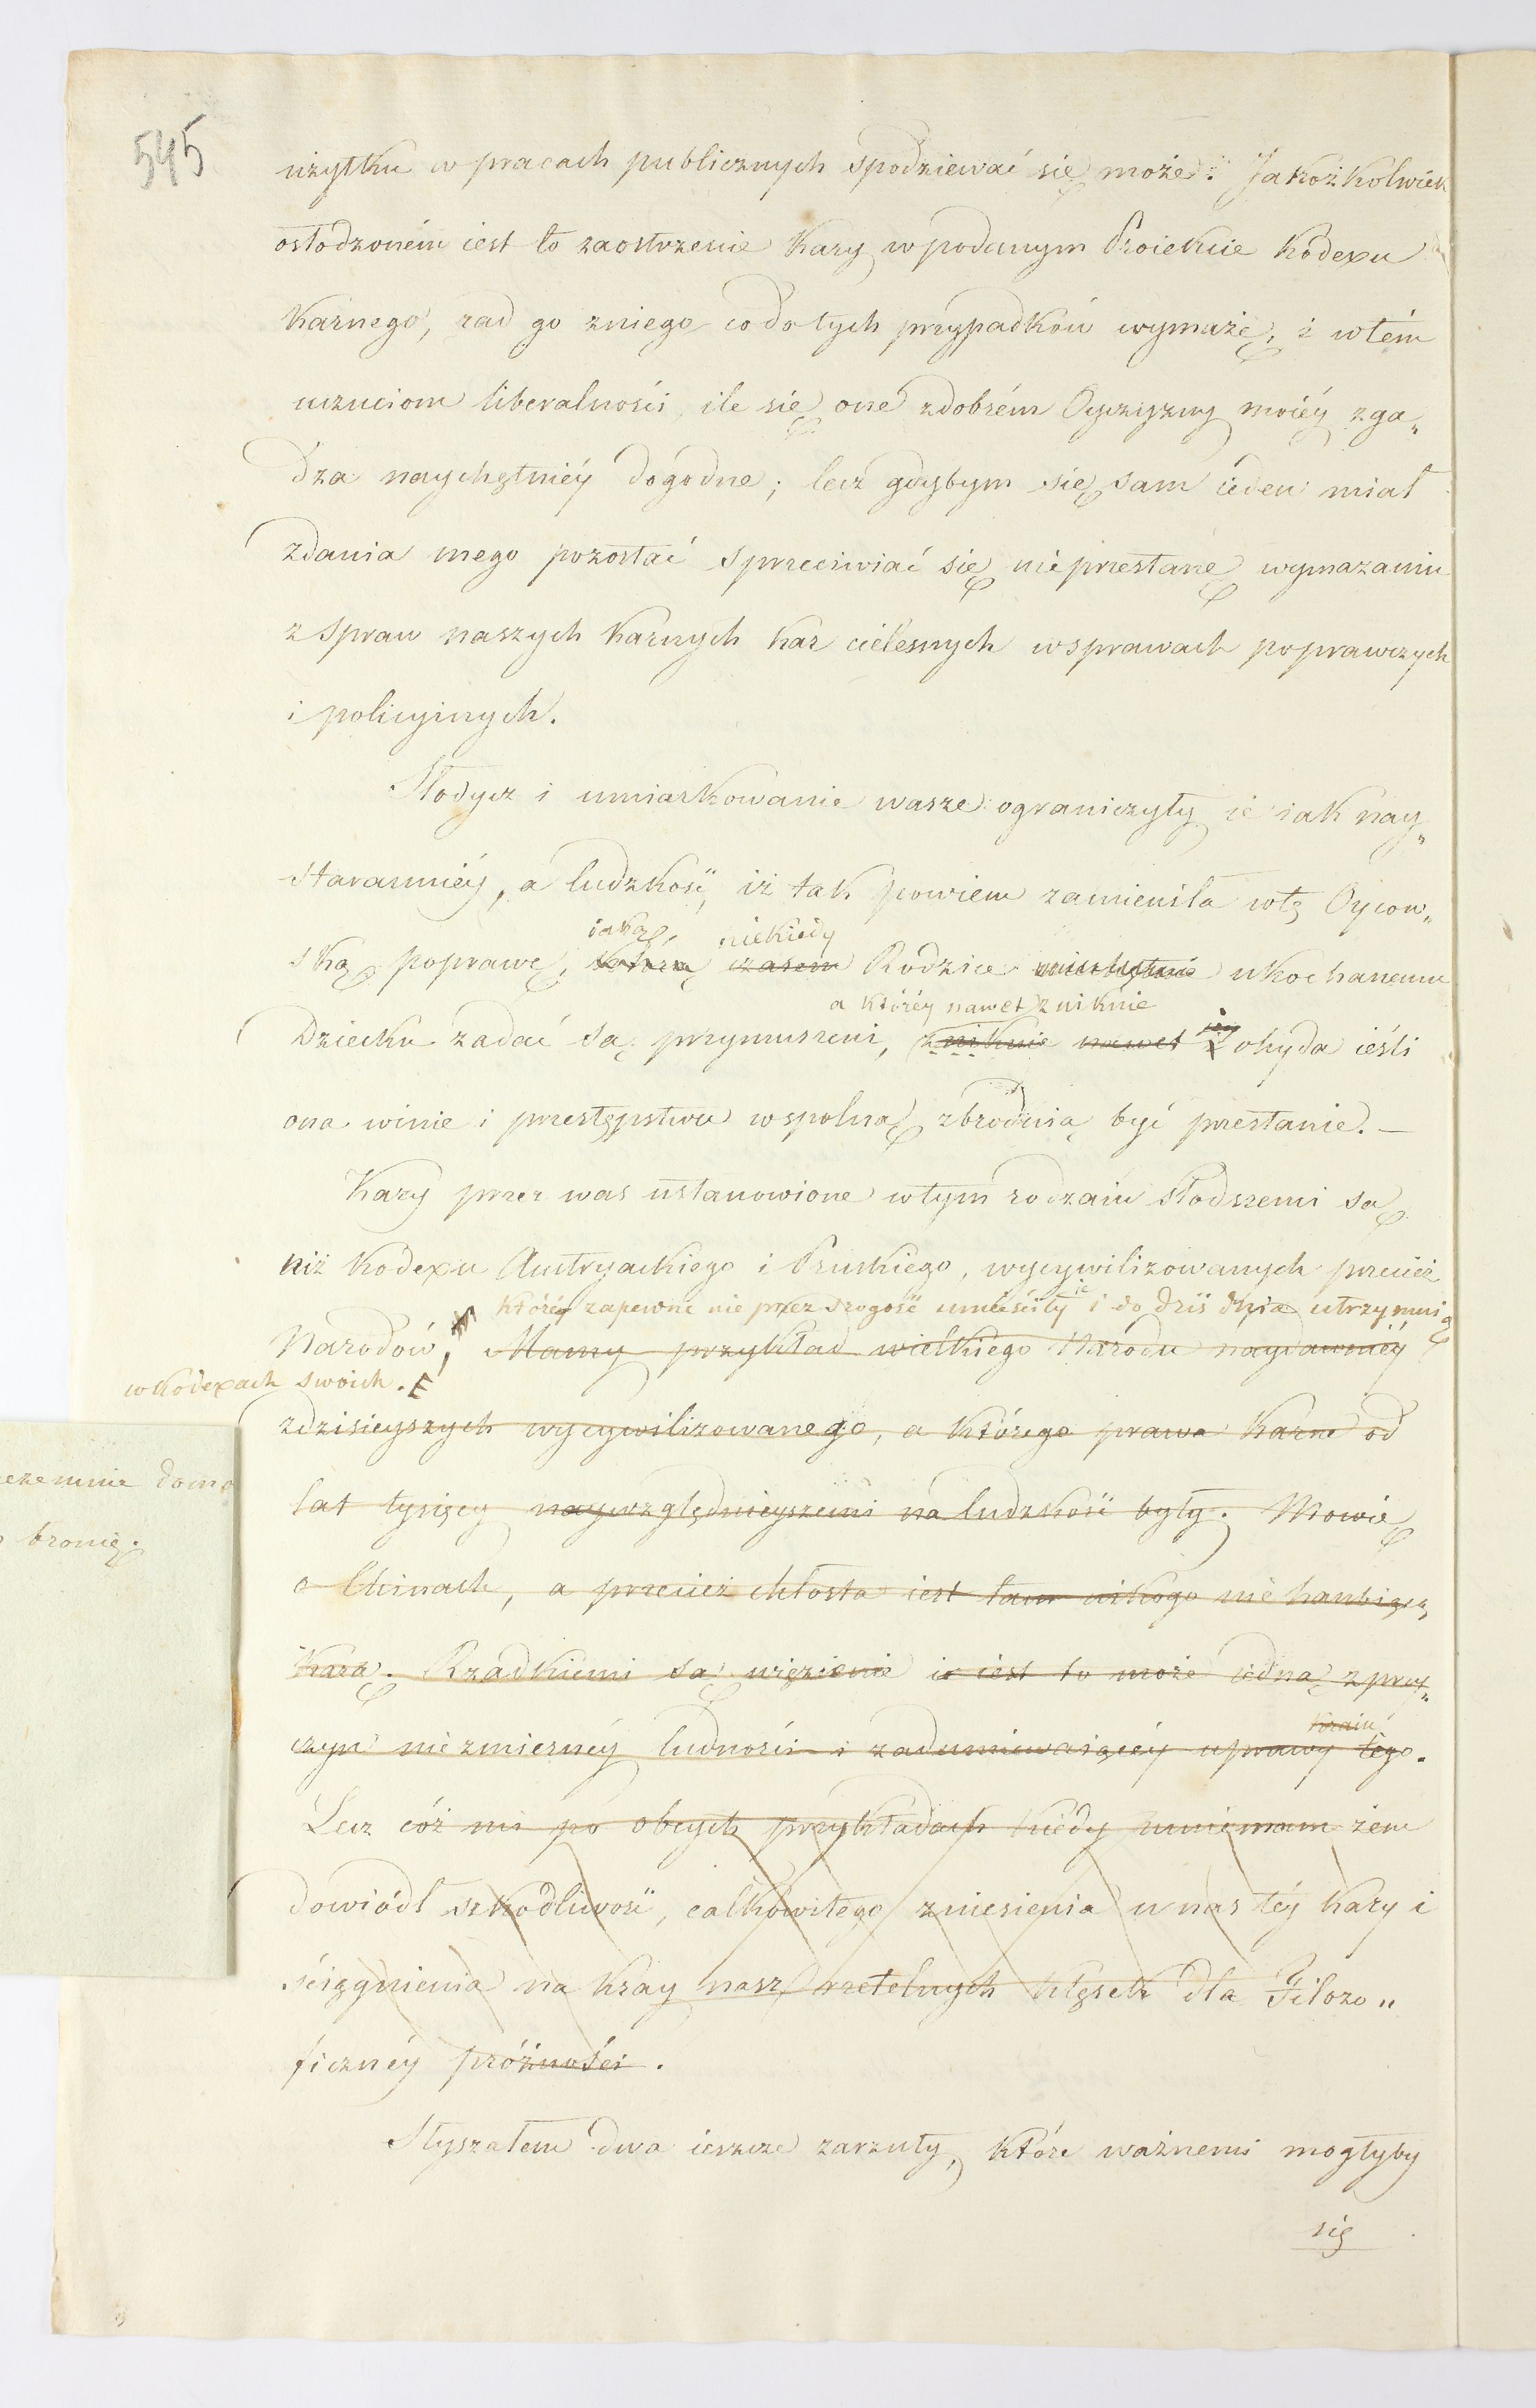 545
użytku w pracach publicznych spodziewać się może. Jakożkolwiek
osłodzoném iest to zaostrzenie Kary w podanym Proiekcie Kodexu
Karnego, rad go zniego co do tych przypadków wymażę, i wtém
uczuciom liberalności ile się one zdobrém Oyczyzny moiéy zga„
dza naychętniéy dogodne; lecz gdybym się sam ieden miał
zdania mego pozostać sprzeciwiać się nieprzestanę wymazaniu
z spraw naszych Karnych kar cielesnych w sprawach poprawczych
i policyinych.
Słodycz i umiarkowanie wasze ograniczyły ie iak nay„
staranniéy, a ludzkość, iż tak powiem zamieniła wtę Oycow„
iaką, niekiedy
ską poprawę, którą czasem Rodzice ukochanemu
a któréy nawet zniknie
Dziecku zadać są przymuszeni, zniknie nawet iey ohyda ieśli
ona winie i przestępstwu wspolną zbrodnią być przestanie. —
Kary przez was ustanowione wtym rodzaiu słodszemi są
niż Kodexu Austryackiego i Pruskiego, wycywilizowanych przecież
któréy zapewne nie przez srogość umieściły ie i do dziś dnia utrzymuią
Narodów, Mamy przykład wielkiego Narodu naydawniéy
w Kodexach swoich.
zdzisieyszych wycywilizowanego, a którego prawa Karne od
lat tysięcy naywzględnieyszemi na ludzkość były. Mowię
o Chinach, a przecież chłosta iest tam nikogo nie hanbiącą
Karą. Rzadkiemi są więzienie i iest to może iedną z przy„
kraiu
czyn niezmiernéy ludności i zadumiewaiącéy uprawy tego.
Lecz cóż mi po obcych przykładach kiedy mniemam żem
dowiódł szkodliwość, całkowitego zniesienia u nas téy kary i
ściągnienia na Kray nasz rzetelnych klęsek dla Filozo„
ficznéy próżności.
Słyszałem dwa ieszcze zarzuty, które ważnemi mogłyby
się
bronię.